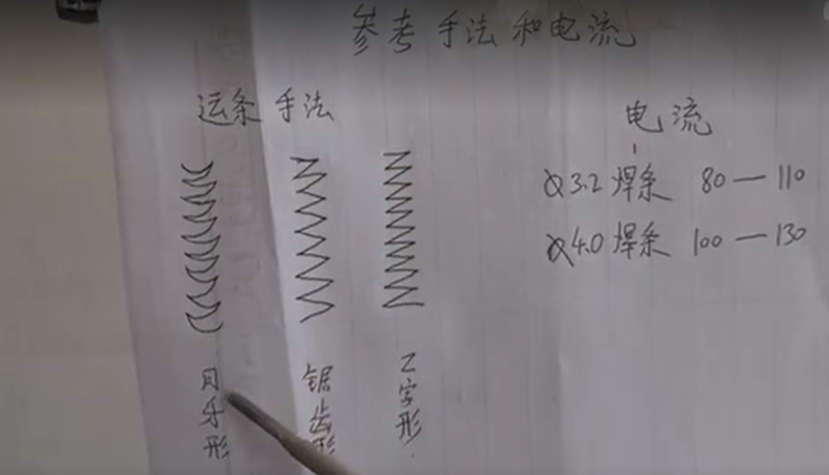 参考手法和电流
运条手法
电流
Ø3.2焊条 80—110
Ø4.0焊条 100—130
月牙形
锯齿形
Z字形